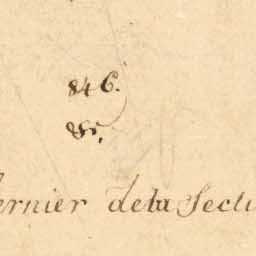 846.
&c.
ernier de la Secti